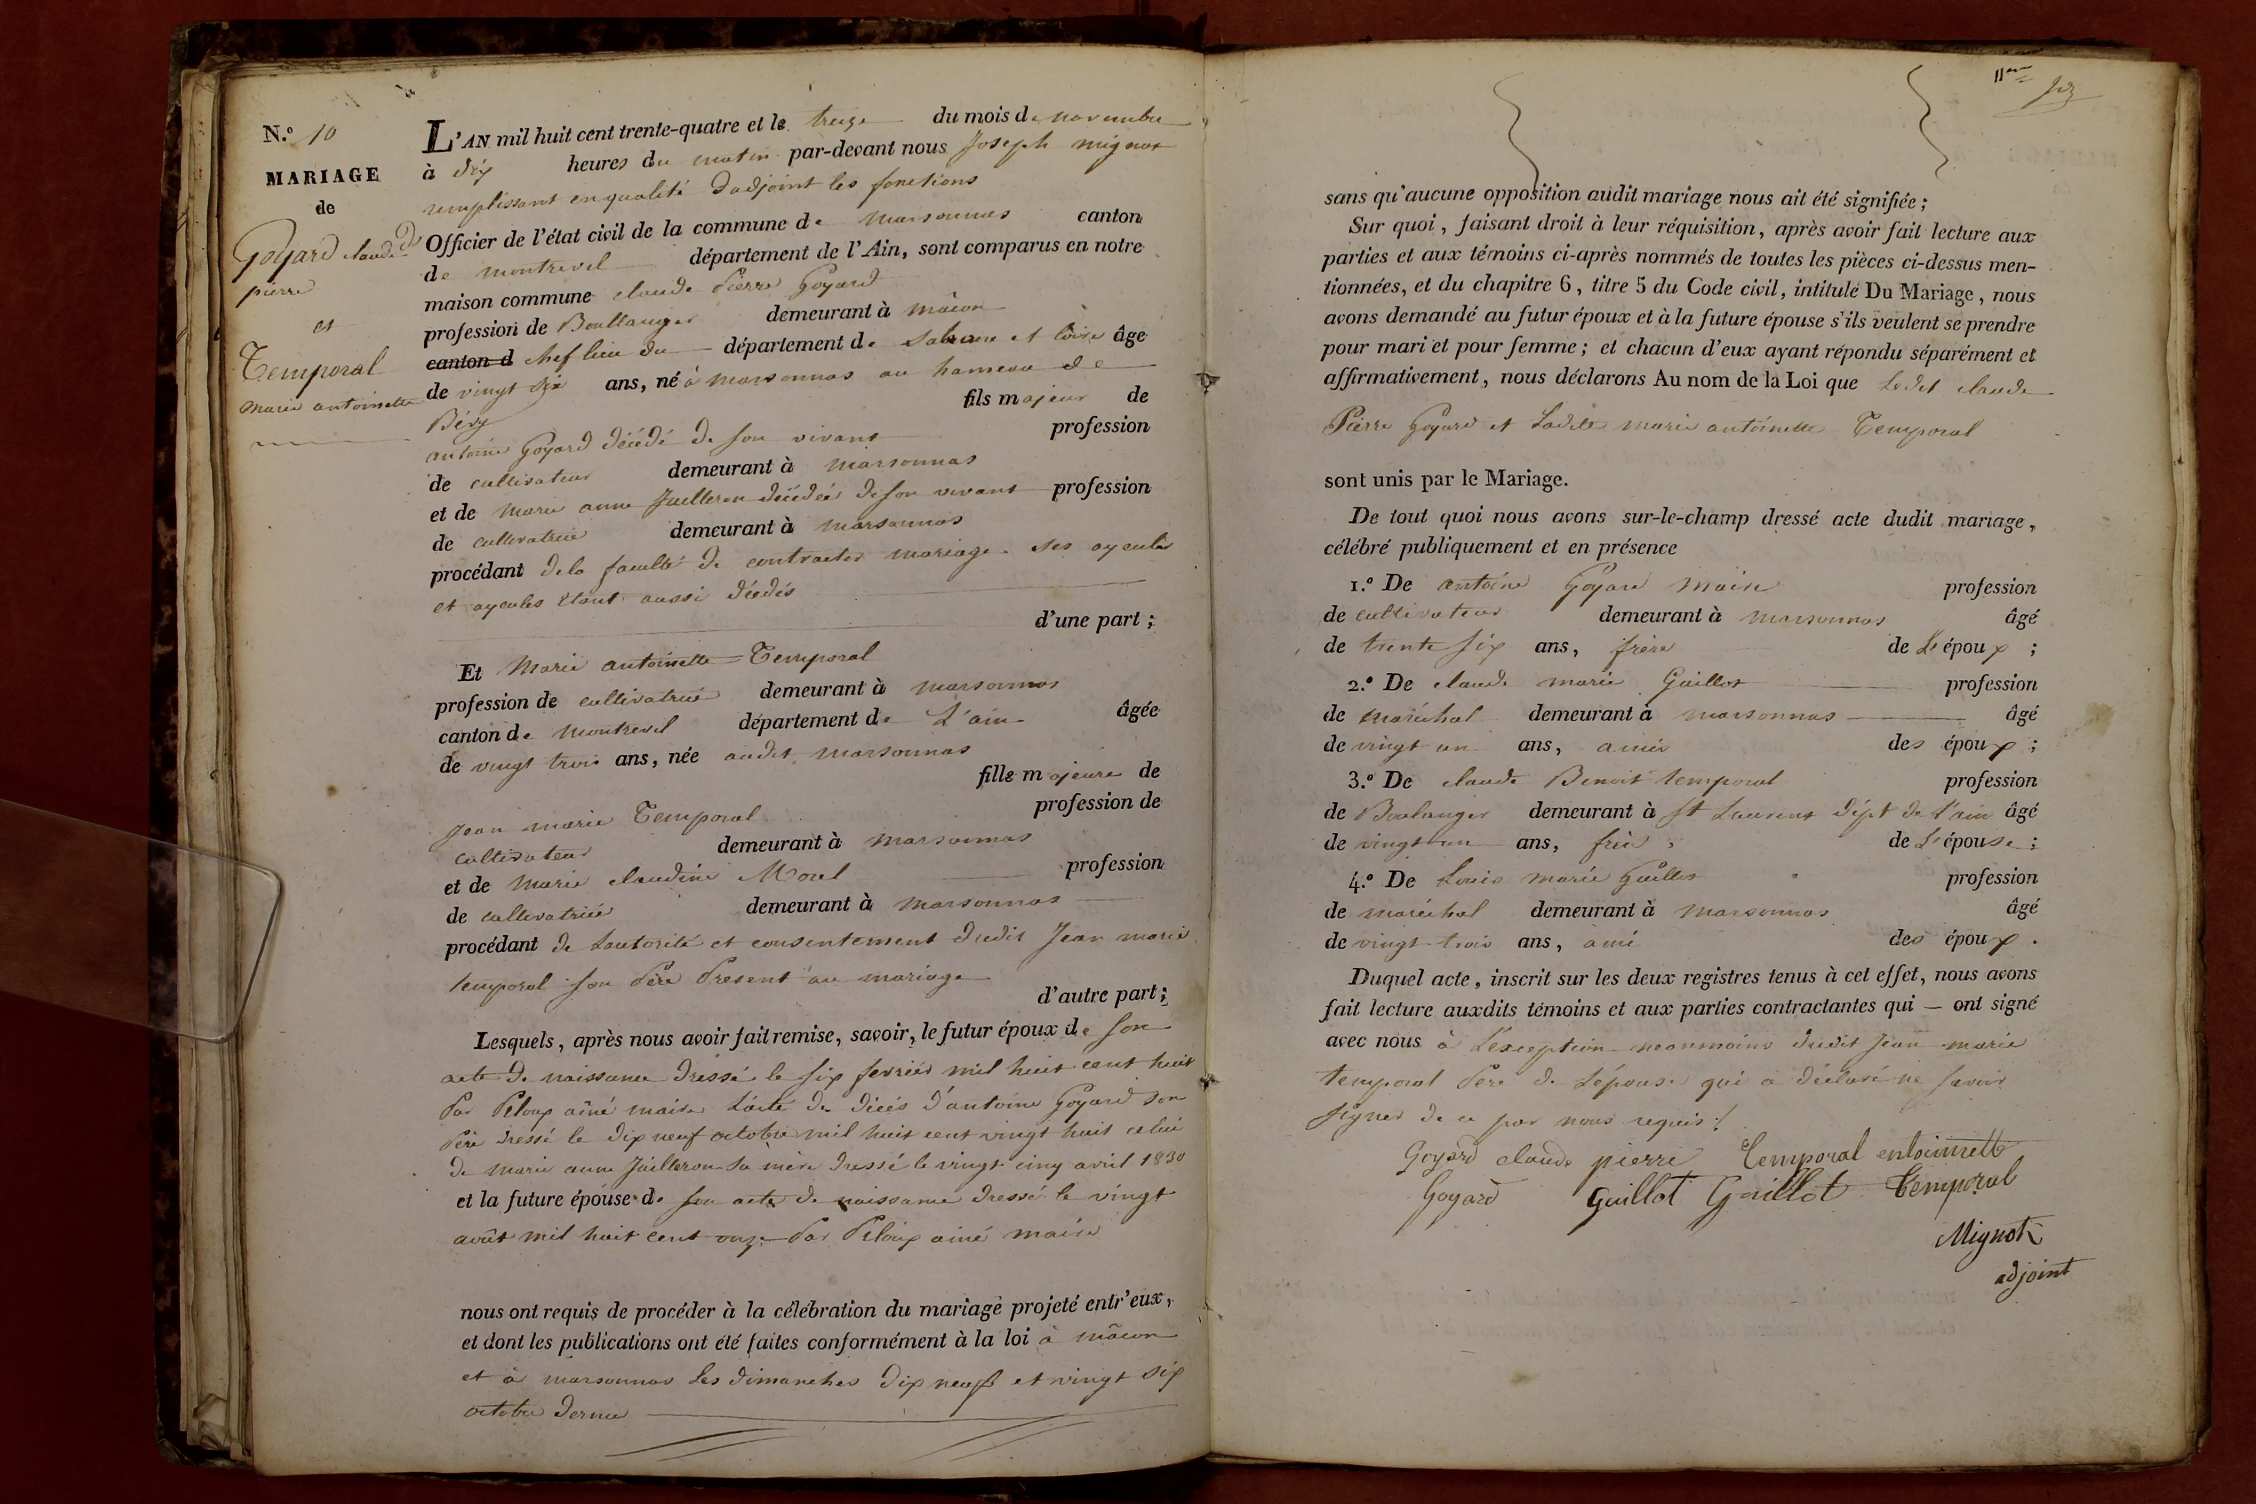 N.º 10
MARIAGE
de
Goyard claude
pierre
et
Temporal
marie antoinette
L'AN mil huit cent trente-quatre et le treize du mois de novembre
à dix heures du matin par-devant nous Joseph mignot
remplissant en qualité d'adjoint les fonctions
Officier de l'état civil de la commune de marsonnas canton
de montrevel département de l'Ain, sont comparus en notre
maison commune claude Pierre Goyard
profession de Boullanger demeurant à mâcon
canton d chef lieu du département de et loire âge
de vingt six ans, né à marsonnas au hameau de
Béry fils majeur de
antoine Goyard décédé de son vivant profession
de cultivateur demeurant à marsonnas
et de marie anne Juilleron décédée de son vivant profession
de cultivatrice demeurant à marsonnas
procédant de la faculté de contracter mariage ses ayeuls
et ayeules étant aussi dédés
d'une part ;
Et Marie antoinette Temporal
profession de cultivatrice demeurant à marsonnas
canton de montrevel département de L'ain âgée
de vingt trois ans, née audit marsonnas
fille majeure de
Jean marie Temporal profession de
cultivateur demeurant à marsonnas
et de marie claudine Morel profession
de cultivatrice demeurant à marsonnas
procédant de Lautorité et consentement dudit Jean marie
temporal son Père Présent au mariage
d'autre part ;
Lesquels, après nous avoir fait remise, savoir, le futur époux de son
acte de naissance dressé le six fevrier mil huit cent huit
Par Piloux aîné maire L'acte de décès d'antoine Goyard son
Père dressé le dix neuf octobre mil huit cent vingt huit celui
de marie anne Juilleron sa mère dressé le vingt cinq avril 1830
et la future épouse de son acte de naissance dressé le vingt
août mil huit cent onze Par Piloux ainé maire
nous ont requis de procéder à la célébration du mariage projeté entr'eux,
et dont les publications ont été faites conformément à la loi à mâcon
et à marsonnas Les dimanches dix neuf et vingt six
octobre dernier
sans qu'aucune opposition audit mariage nous ait été signifiée ;
Sur quoi, faisant droit à leur réquisition, après avoir fait lecture aux
parties et aux témoins ci-après nommés de toutes les pièces ci-dessus men-
tionnées, et du chapitre 6, titre 5 du Code civil, intitulé Du Mariage, nous
avons demandé au futur époux et à la future épouse s'ils veulent se prendre
pour mari et pour femme ; et chacun d'eux ayant répondu séparément et
affirmativement, nous déclarons Au nom de la Loi que Ledit claude
Pierre Goyard et Ladite marie antoinette Temporal
sont unis par le Mariage.
De tout quoi nous avons sur-le-champ dressé acte dudit mariage,
célébré publiquement et en présence
1.º De antoine Goyard profession
de cultivateur demeurant à marsonnas âgé
de trente six ans, frère de L'époux ;
2.º De claude marie Guillot profession
de maréchal demeurant à marsonnas âgé
de vingt un ans, amis des époux ;
3.º De claude Benoit temporal profession
de Boulanger demeurant à St Laurent dépt de L'ain âgé
de vingt un ans, frère de L'épouse ;
4.º De Louis marie Guillot profession
de maréchal demeurant à marsonnas âgé
de vingt trois ans, ami des époux.
Duquel acte, inscrit sur les deux registres tenus à cet effet, nous avons
fait lecture auxdits témoins et aux parties contractantes qui — ont signé
avec nous à L'exception neanmoins dudit Jean marie
temporal Père de L'épouse qui a déclaré ne savoir
signer de ce par nous requis
Goyard claude pierre Temporal entoinette
Goyard Guillot Guillot Temporal
Mignot
adjoint